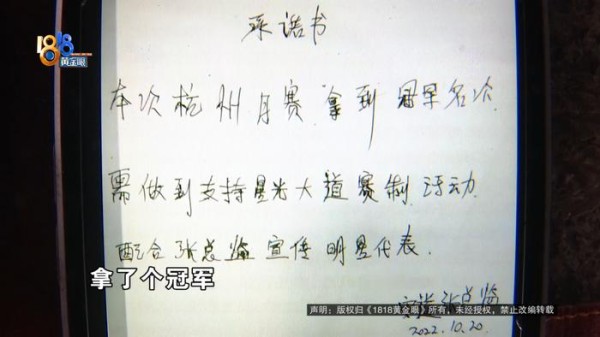 1818
黄金眼
承诺书
本次杭州月赛拿到冠军名次
需做到支持星光大道赛制活动
配合张总监宣传明星代表.
拿了个冠军
张总监
声明：版权归《1818黄金眼》所有，未经授权，禁止改编转载
2022.10.20.